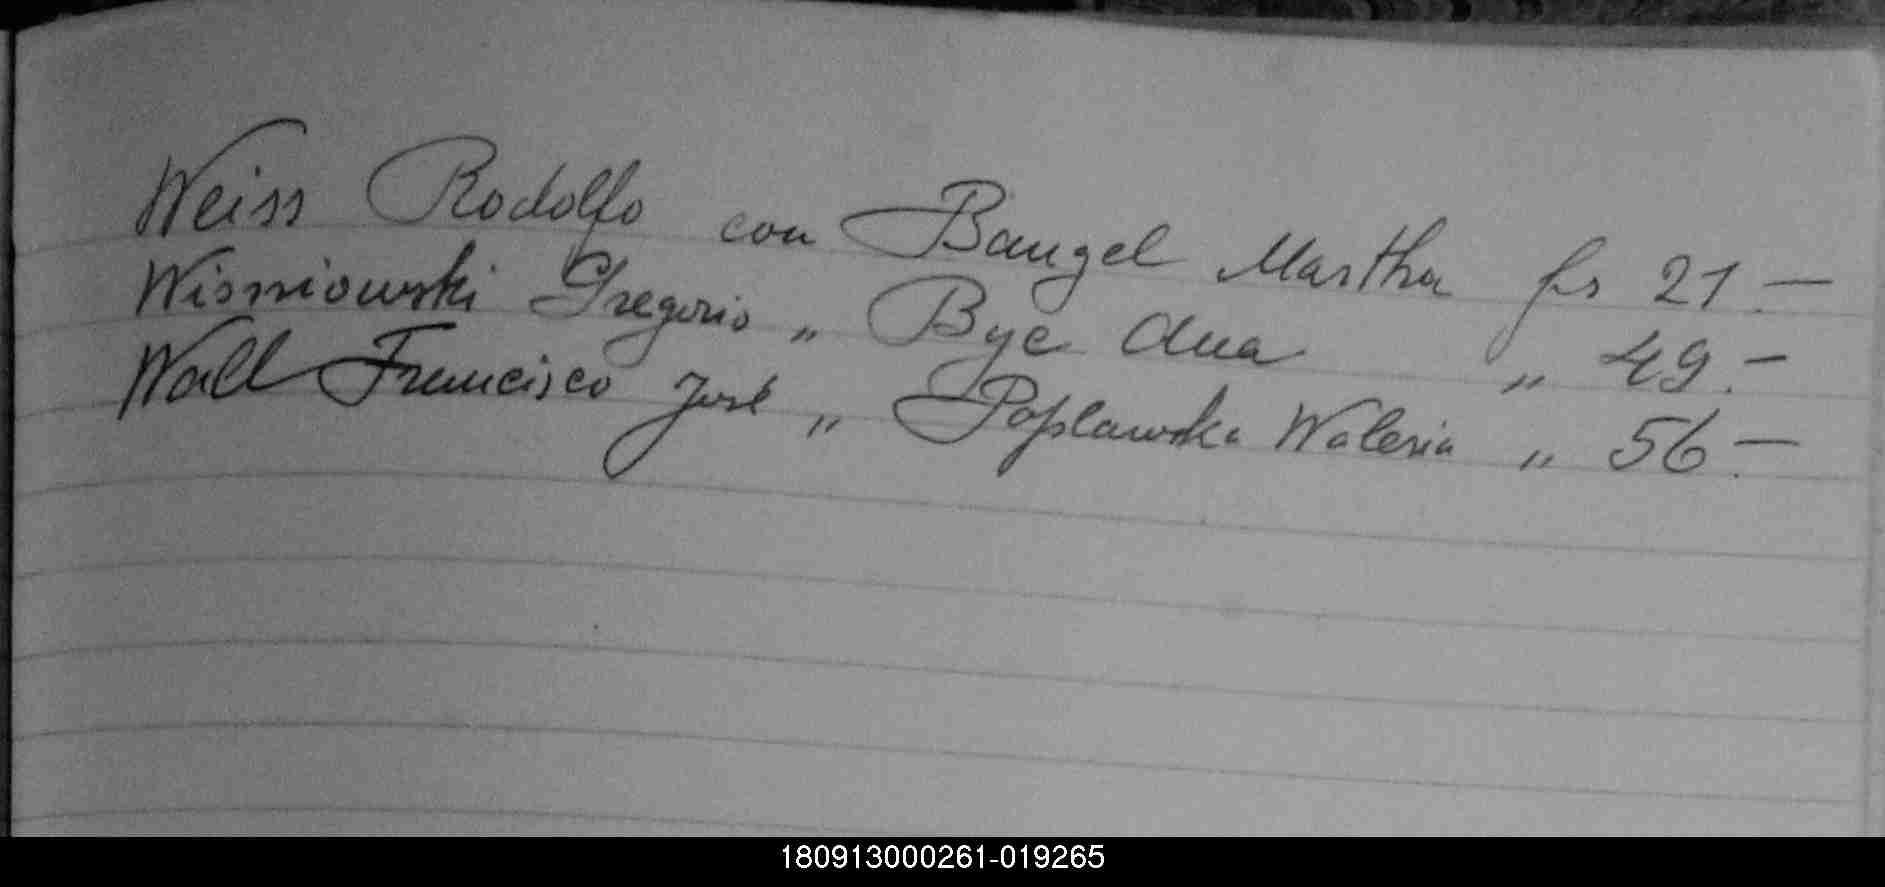 Weiss Rodolfo con Bangel Martha fs 21.—
Wisniowski Gregorio „ Byc Ana „ 49.—
Wall Francisco José „ Poplawska Waleria „ 56.—
180913000261-019265